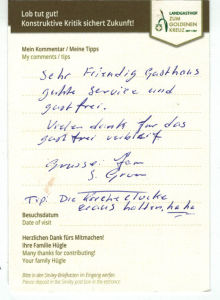 Lob tut gut!
Konstruktive Kritik sichert Zukunft!
LANDGASTHOF
ZUM
GOLDENEN
KREUZ
Mein Kommentar / Meine Tipps
My comments / tips
Sehr Friendig Gasthaus
guhte Service und
gastfrei.
Vielen dank für das
gastfrei verbleif
Grusse: fam
S. Grum
Tip: Die Kirche glocke
eraus halten, ha ha
Besuchsdatum
Date of visit
Herzlichen Dank fürs Mitmachen!
Ihre Familie Hügle
Many thanks for contributing!
Your family Hügle
Bitte in den Smiley-Briefkasten im Eingang werfen.
Please deposit in the Smiley post box in the entrance